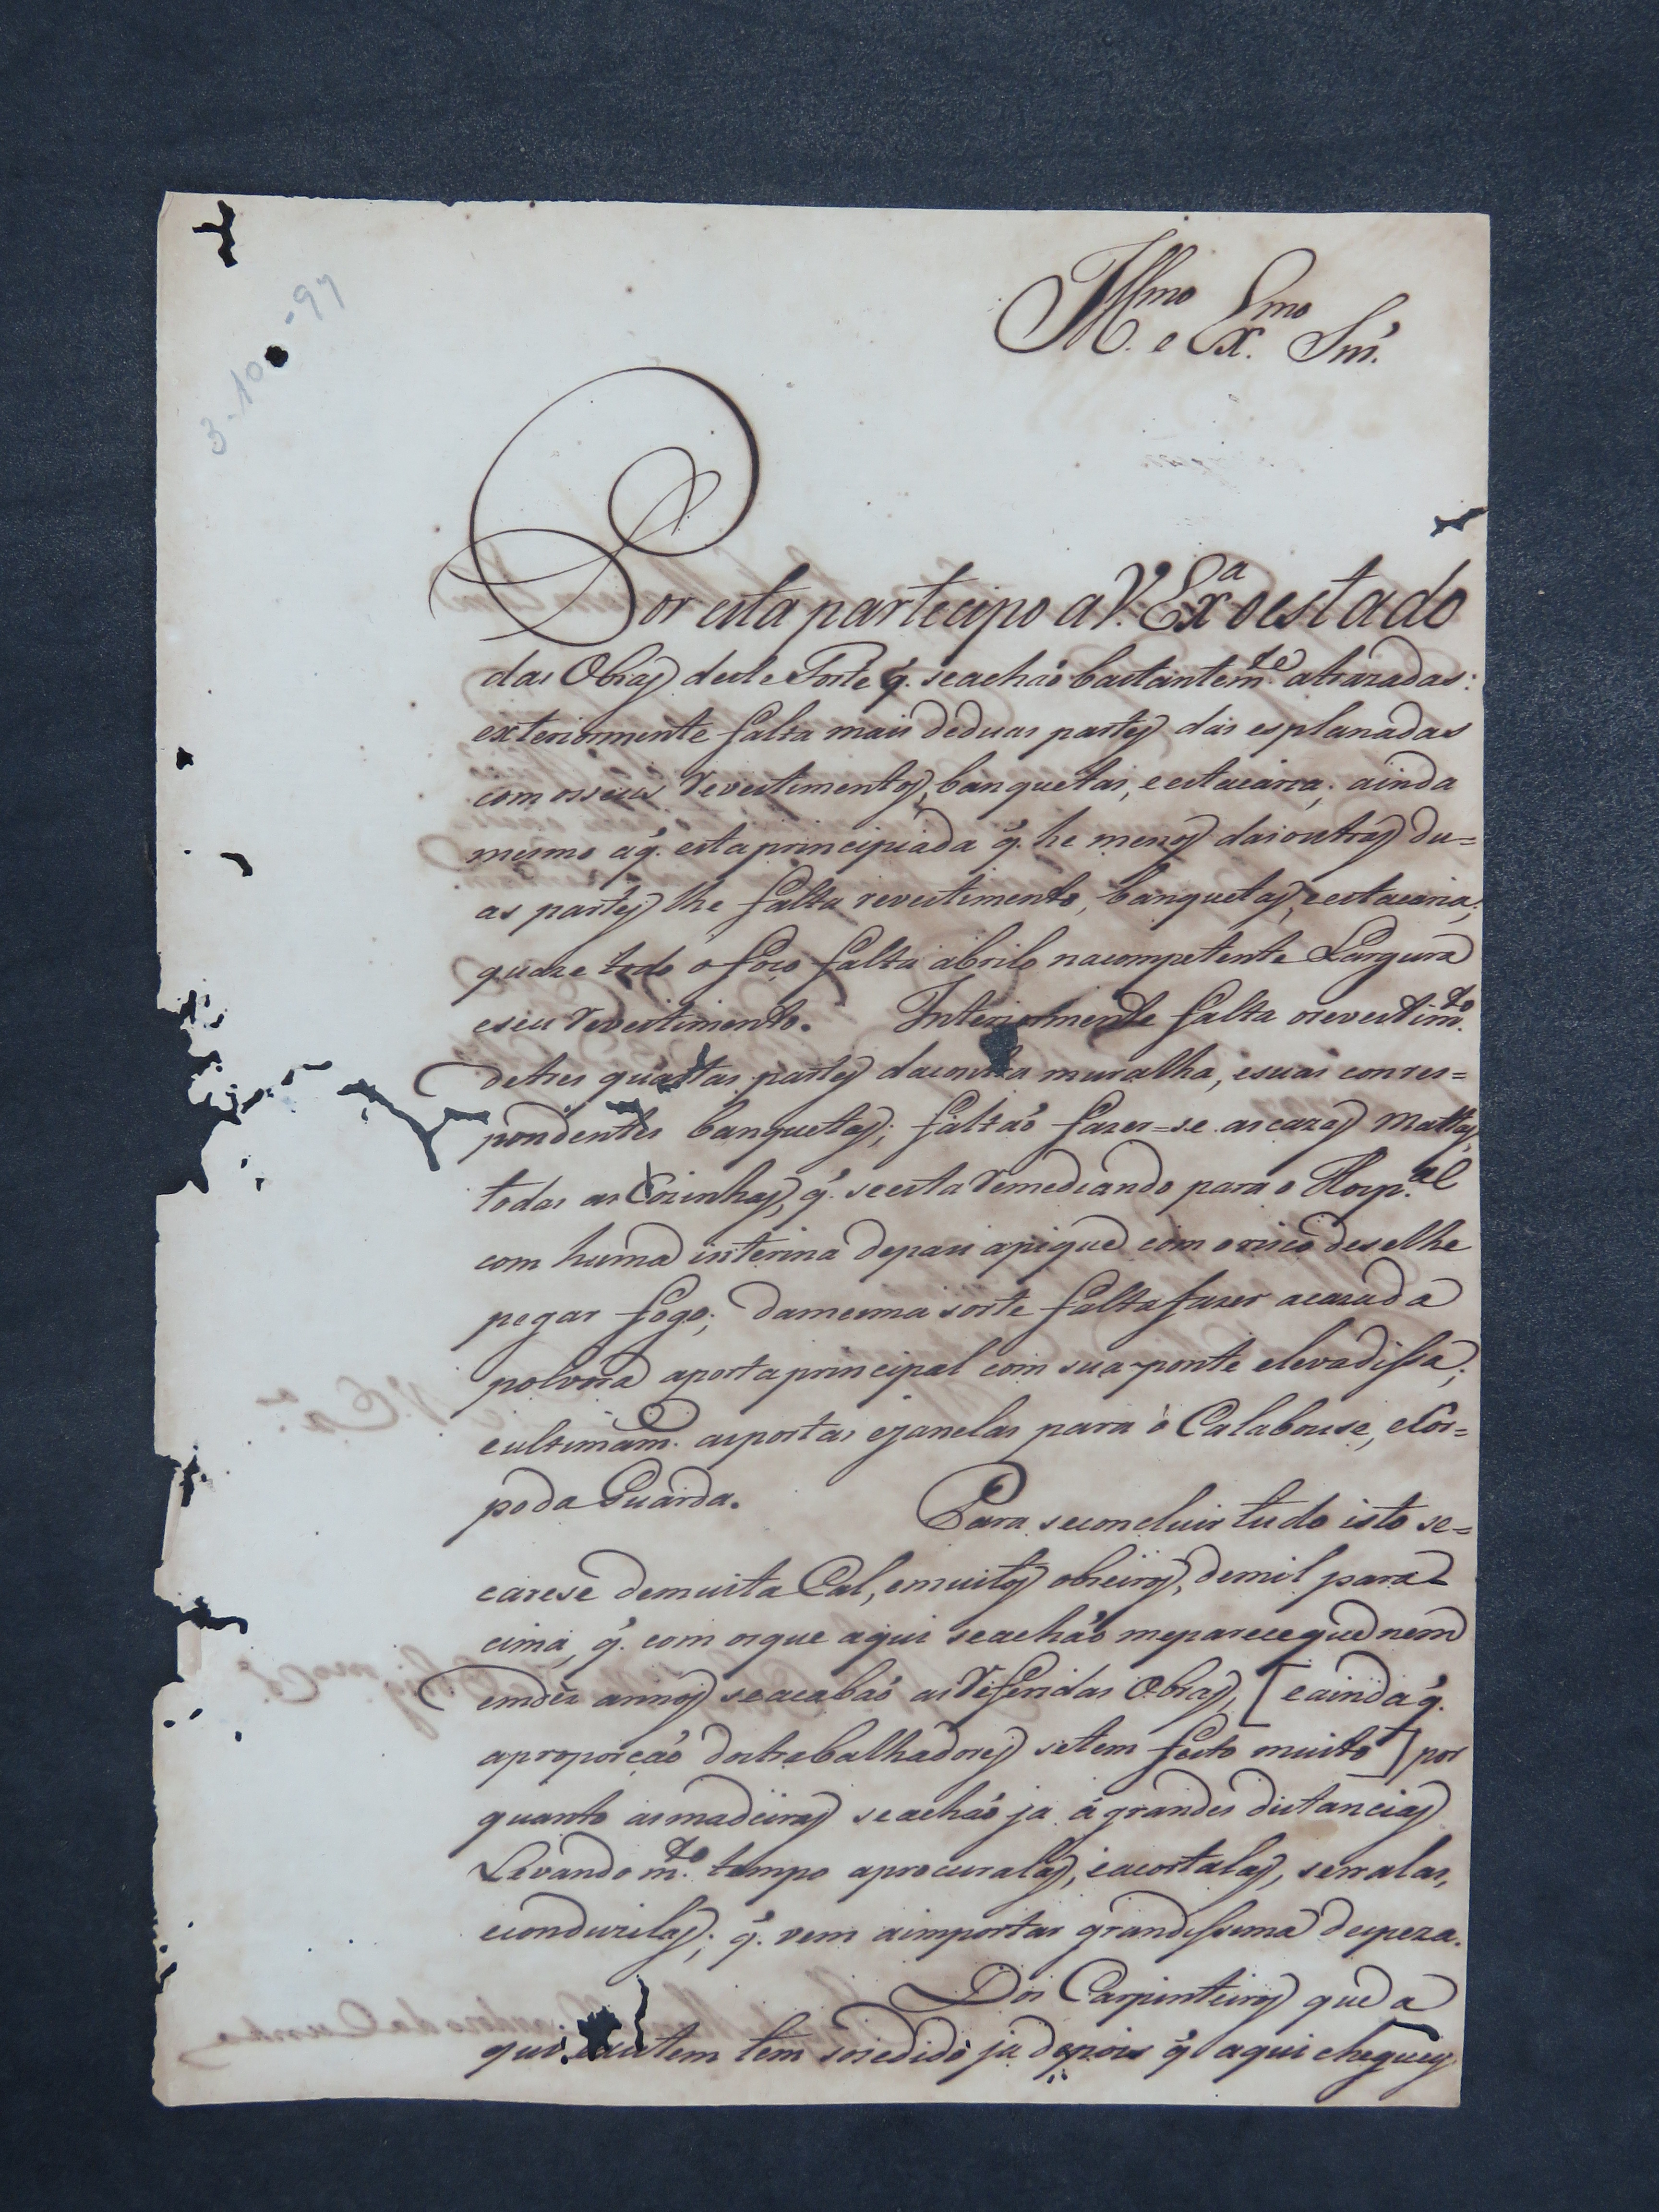 3-10-97
Ill.mo e Ex.mo Snr.
Por esta partecipo a V. Ex.a o estado
das Obras deste Forte q. se achão bastantem.te atrazadas:
exteriormente falta mais de duas partes das esplanadas
com os seus revestimentos, banquetas, e estacaria; ainda
mesmo a q. esta principiada q. he menos das outras du=
as partes lhe falta revestimento, banquetas, e estacaria;
quaze todo o foço falta abrilo na competente Largura
e seu revestimento. Interiormente falta o revestim.to
de tres quartas partes da contra muralha, e suas corres=
pondentes banquetas; faltão fazer=se as cazas Mattas,
todas as Cozinhas, q. se esta remediando para o Hosp.al
com huma interina de pau a pique com o risco de se lhe
pegar fogo; da mesma sorte falta fazer a caza da
polvora a porta principal com sua ponte elevadissa;
e ultimam. as portas e janelas para o Calabouse, e Cor=
po da Guarda. Para se concluir tudo isto se=
carese de muita Cal, e muitos obreiros, de mil para
cima, q. com os que aqui se achão me parece que nem
em dez annos se acabão as referidas Obras, [e ainda q.
a proporcão dos trabalhadores se tem feito muito] por
quanto as madeiras se achão ja a grandes distancias
Levando m.to tempo a procuralas, e a cortalas, serralas,
e conduzilas; q. vem a importar grandissima despeza.
Dos Carpinteiros que a
qui existem tem socedido ja depois q. aqui cheguey